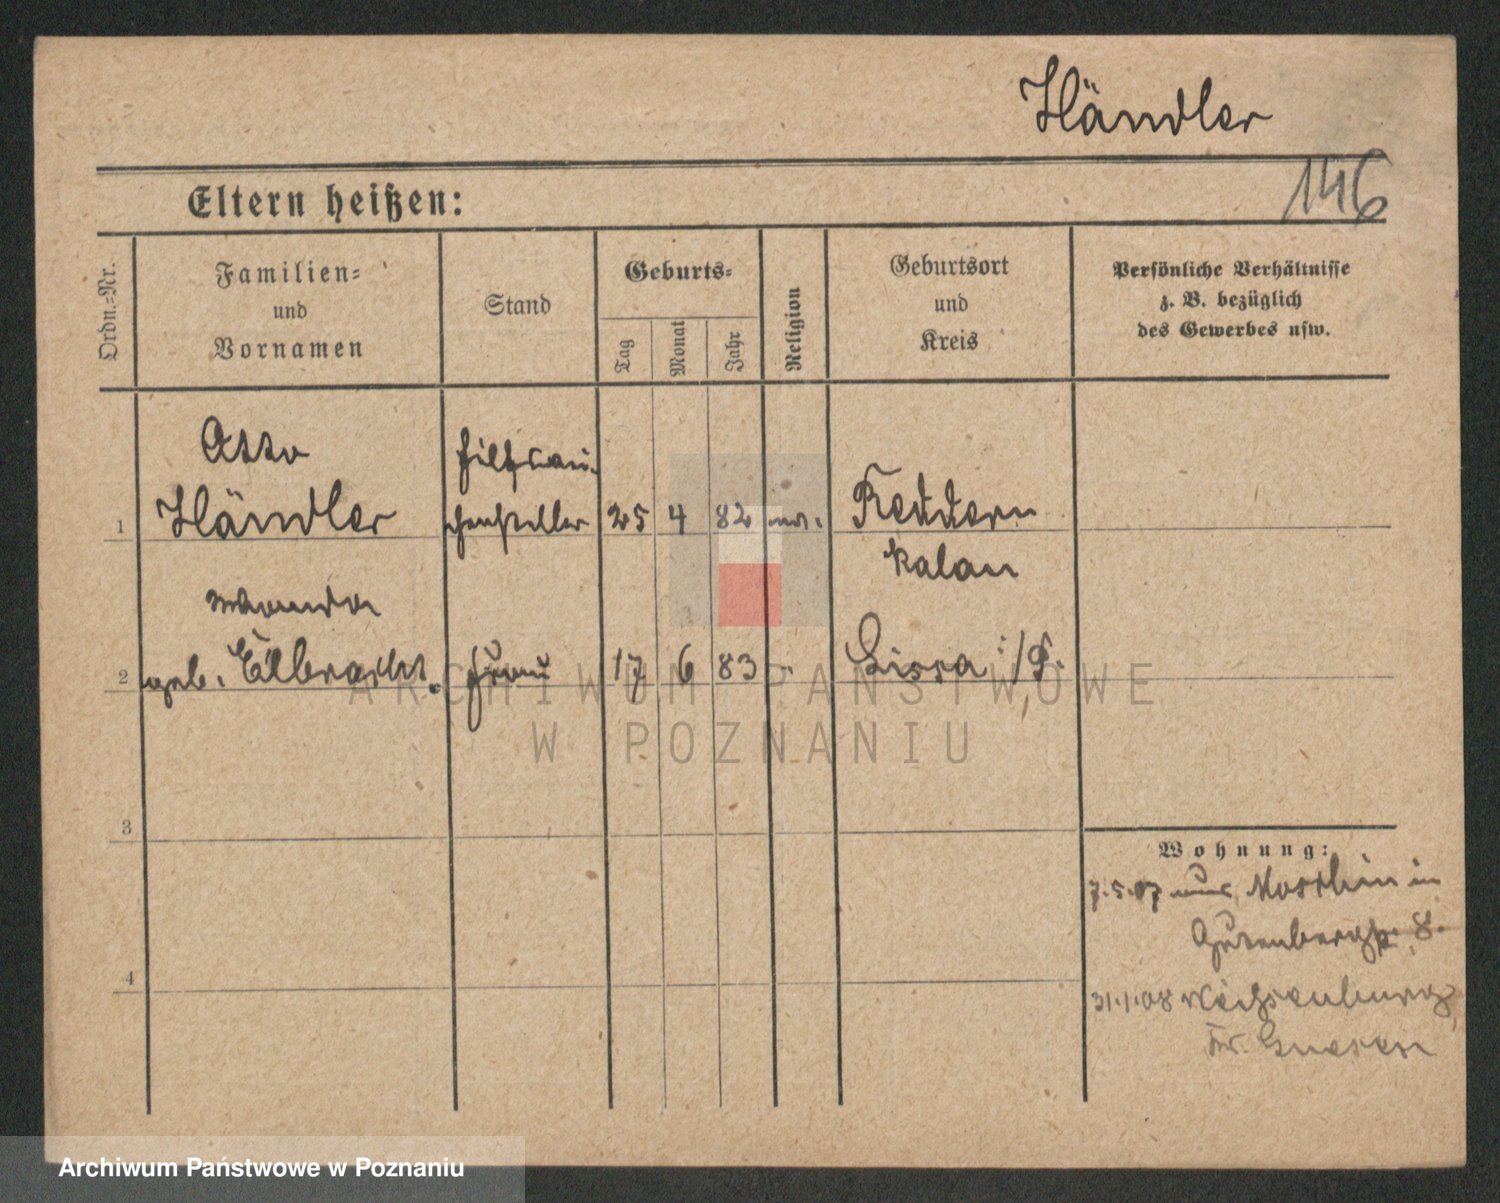 Händler
146
Eltern heißen:
Ordn.-Nr.
Familien-
und
Vornamen
Stand
Geburts-
Tag
Monat
Jahr
Religion
Geburtsort
und
Kreis
Persönliche Verhältnisse
z. B. bezüglich
des Gewerbes usw.
Otto
Hilfswei-
1 Händler chensteller 25 4 82 ev. Reddern
Kalau
Wanda
2 geb. Frau 17 6 83 " Lissa i/P.
3
4
Wohnung:
7.5.07 aus Moschin in
Gutenbergstr. 8.
31.1.08
Kr. Gnesen
ARCHIWUM PAŃSTWOWE
W POZNANIU
Archiwum Państwowe w Poznaniu